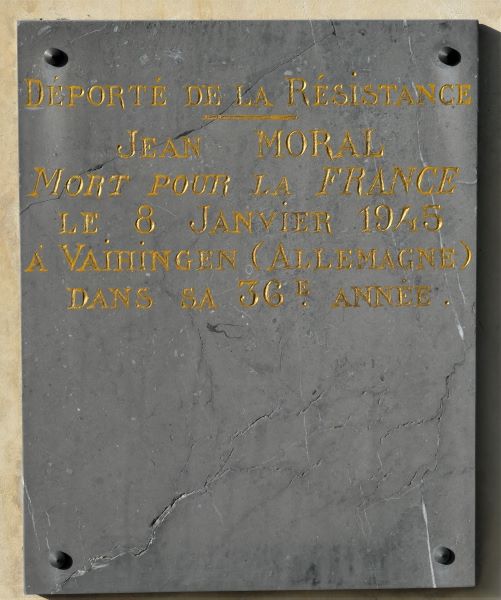 DÉPORTÉ DE LA RÉSISTANCE
JEAN MORAL
MORT POUR LA FRANCE
LE 8 JANVIER 1945
A VAIHINGEN (ALLEMAGNE)
DANS SA 36E ANNÉE.